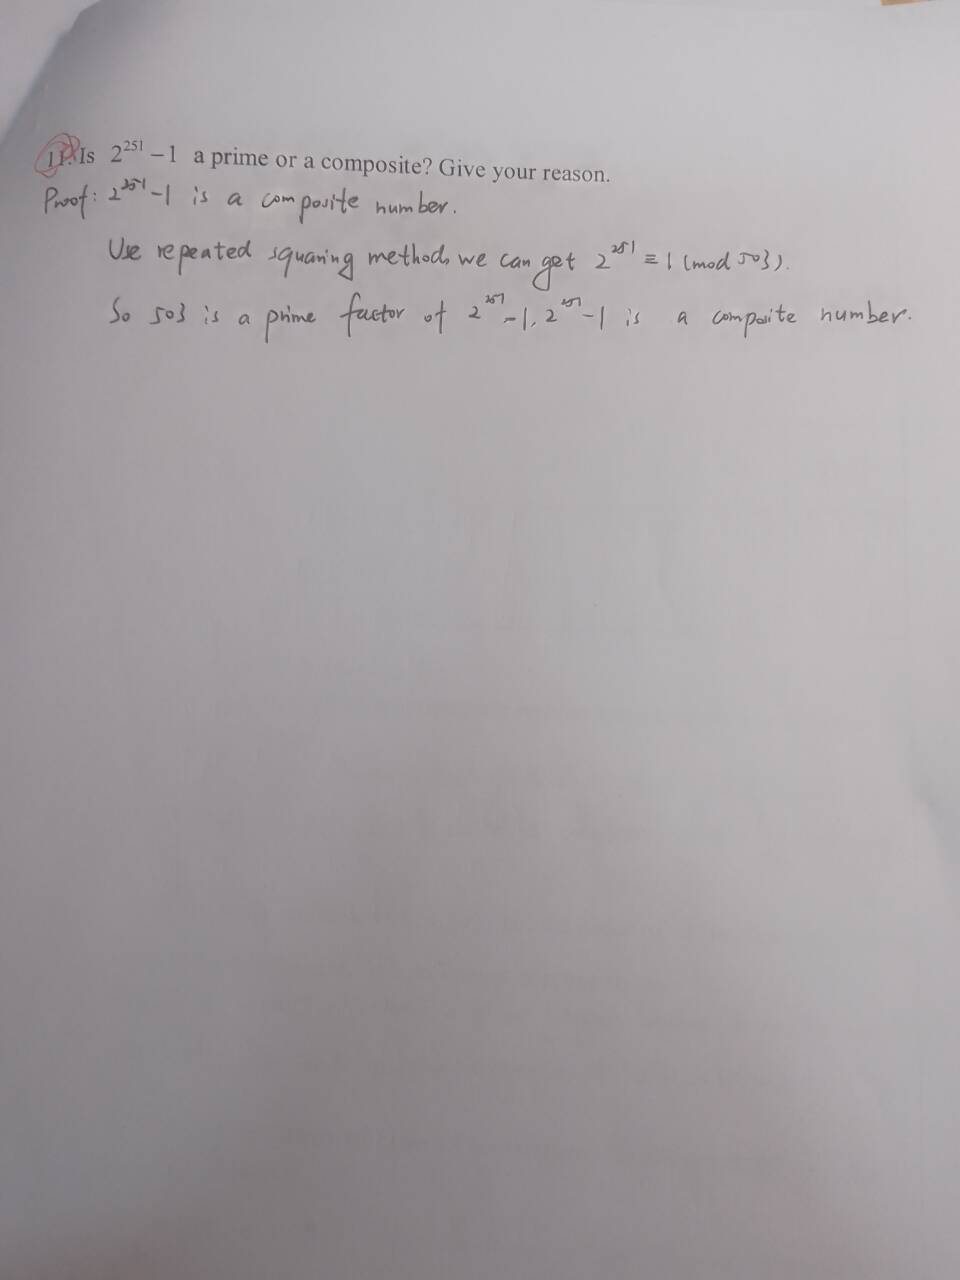 11. Is 2^251 − 1 a prime or a composite? Give your reason.
Proof: 2^251 − 1 is a composite number.
Use repeated squaring method, we can get 2^251 ≡ 1 (mod 503).
So 503 is a prime factor of 2^251 − 1, 2^251 − 1 is a composite number.